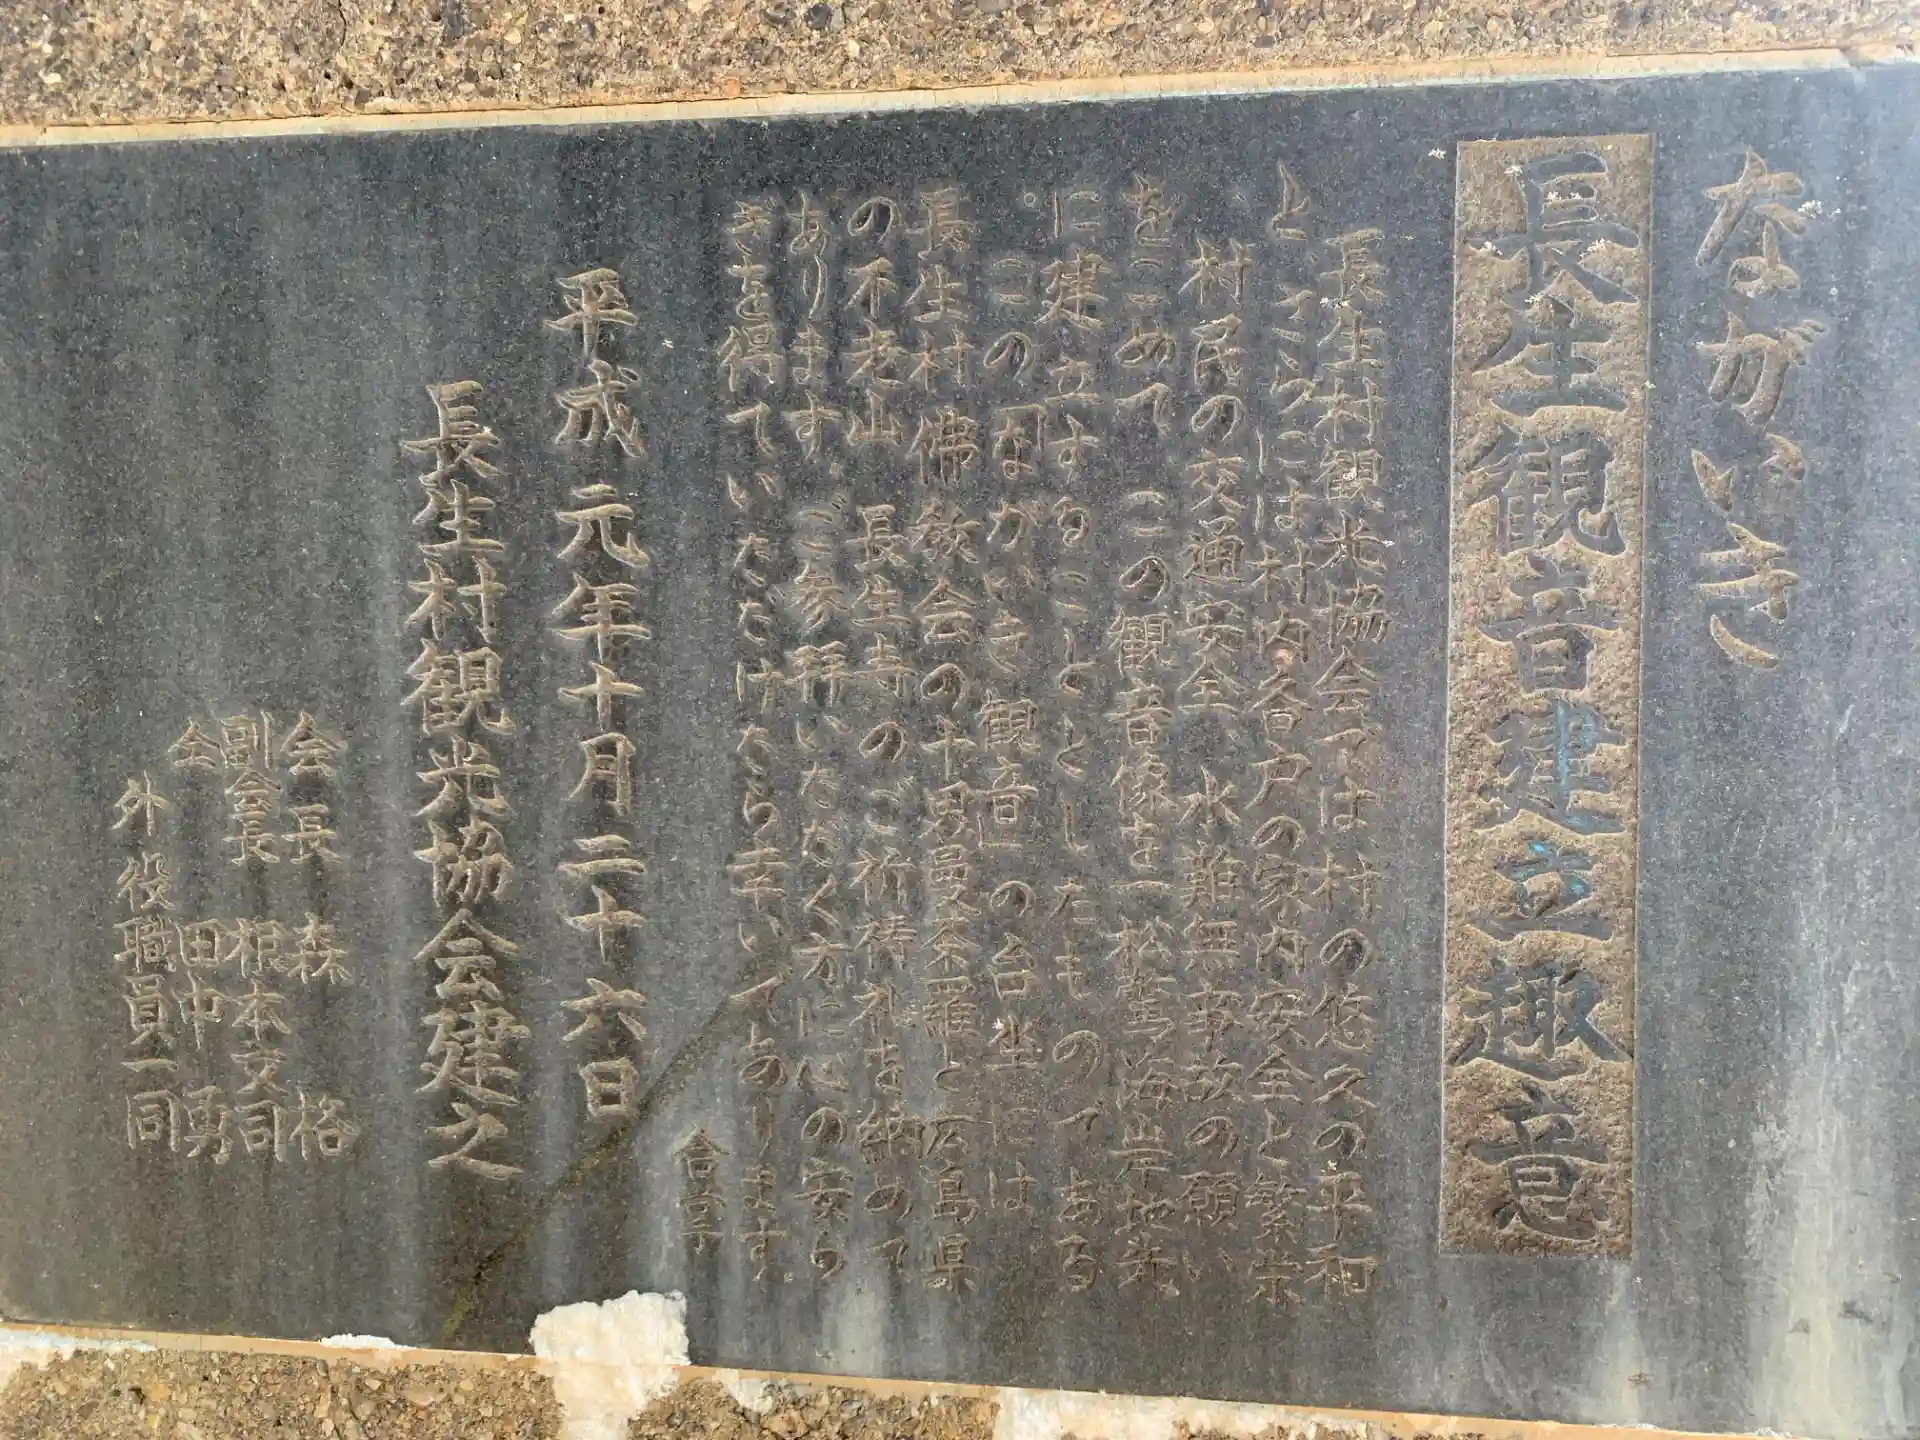 ながいき
長生観音建立趣意
長生村観光協会では、村の悠久の平和
と、さらには村内各戸の家内安全と繁栄
村民の交通安全、水難無事故の願い
をこめて、この観音像を一松驚海岸地先
に建立することとしたものである
。この「ながいき観音」の台坐には
長生村佛教会の十界曼荼羅と広島県
の不老山 長生寺のご祈祷札を納めて
あります。ご参拝いただく方に心の安ら
ぎを得ていただけたら幸いであります。
合掌
平成元年十月二十六日
長生村観光協会建之
会長 森 格
副会長 根本文司
仝 田中 勇
外役職員一同